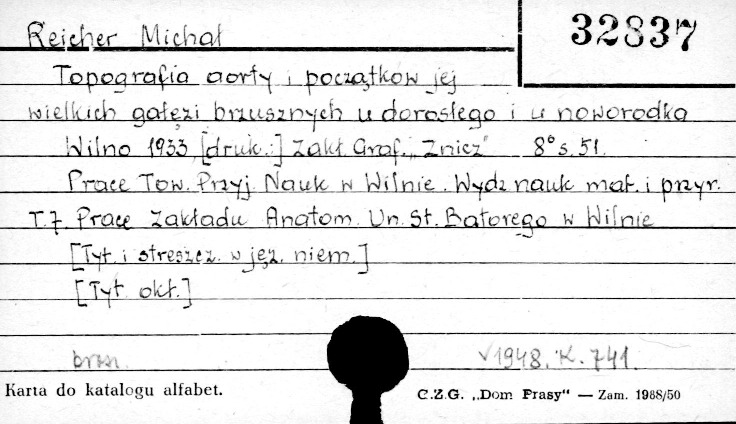 32837
Reicher Michał
Topografia aorty i początków jej
wielkich gałęzi brzusznych u dorosłego i u noworodka
Wilno 1933 [druk.:] Zakł. Graf. „Znicz" 8° s. 51.
Prace Tow. Przyj. Nauk w Wilnie. Wydz nauk mat. i przyr.
T. 7. Prace Zakładu Anatom. Un. St. Batorego w Wilnie
[Tyt. i streszcz. w jęz. niem.]
[Tyt. okł.]
brosz. √1948. K. 741.
Karta do katalogu alfabet.
C.Z.G. „Dom Prasy" — Zam. 1988/50